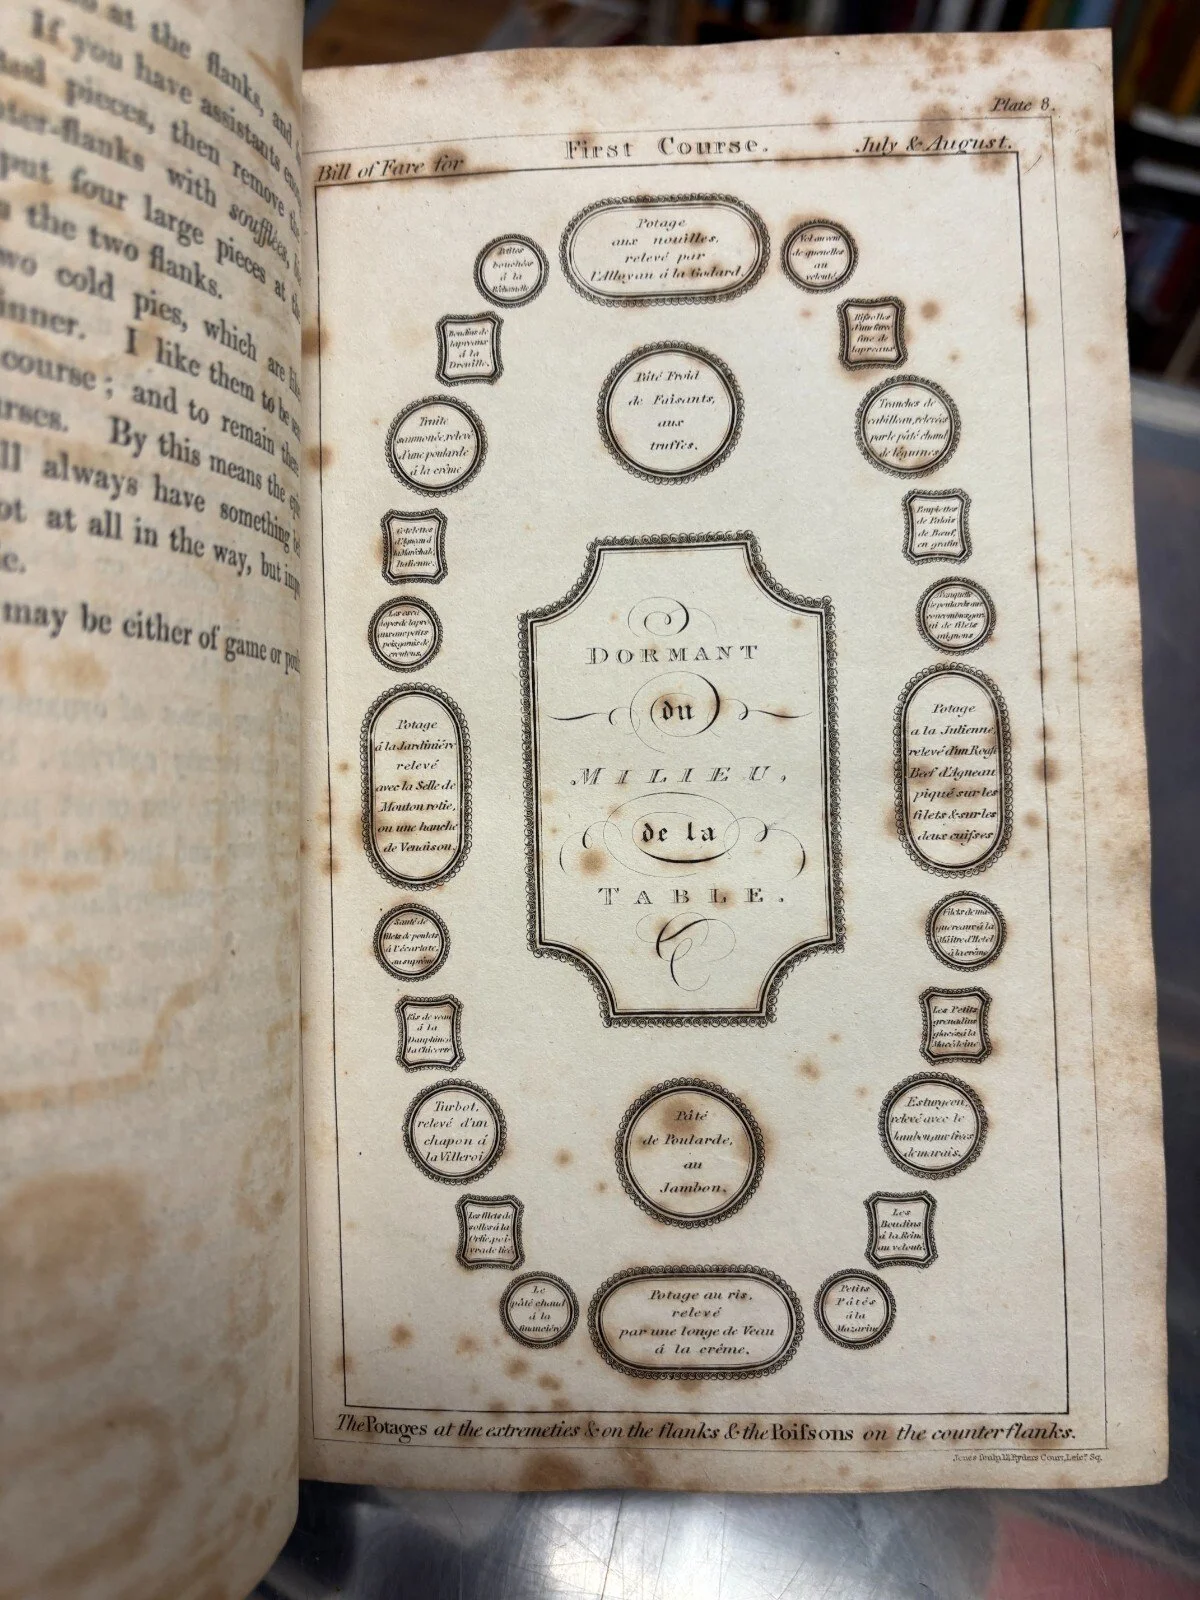 at the flanks, and
If you have assistants
pieces, then remove the
flanks with soufflées,
put four large pieces at the
the two flanks.
two cold pies, which are
inner. I like them to be
course; and to remain
By this means the
always have something
ot at all in the way, but
may be either of game or
Plate 8.
Bill of Fare for
First Course.
July & August.
Potage
aux nouilles,
relevé par
l'Alloyau á la Godard.
Petites
bouchées
á la
Béhamelle
Vol au vent
de quenelles
au
velouté
Boudins de
lapreaux
á la
Rissolles
d'une farce
fine de
lapreaux
Pâté Froid
de Faisants,
aux
truffes.
Truite
saumonée, relevé
d'une poularde
á la crême
Tranches de
cabillaau, relevées
par le pâté chaud
de légumes
Cotelettes
d'Agneau á
la Maréchale,
Italienne.
Poupiettes
de Palais
de Bœuf,
en gratin
Les esca
lopes de lapre
aux aux petits
pois garnis de
croutons.
de poulardes aux
concombres gar
ni de filets
mignons
DORMANT
du
MILIEU,
de la
TABLE.
Potage
á la Jardiniére
relevé
avec la Selle de
Mouton rotie,
ou une hanche
de Venaison.
Potage
a la Julienne,
relevé d'un Roast
Beef d'Agneau
piqué sur les
filets & sur les
deux cuisses
Sauté de
filets de poulets
á l'écarlate,
au suprême
Filets de ma
quereaux á la
Maître d'Hotel
á la crême
Ris de veau
á la
Dauphine á
la Chicorée
Les Petits
grenadins
glacés á la
Macédoine
Turbot,
relevé d'un
chapon á
la Villeroi
Esturgeon,
relevé avec le
Jambon, aux féves
de marais.
Pâté
de Poularde,
au
Jambon.
Les filets de
solles á la
Orlie, poi-
vrade liée.
Les
Boudins
á la Reine
au velouté
Le
pâté chaud
á la
financiére
Potage au ris,
relevé
par une longe de Veau
á la crême.
Petits
Pâtés
á la
Mazarine
The Potages at the extremeties & on the flanks & the Poissons on the counterflanks.
Jones Sculp 12, Ryders Court, Leic.r Sq.